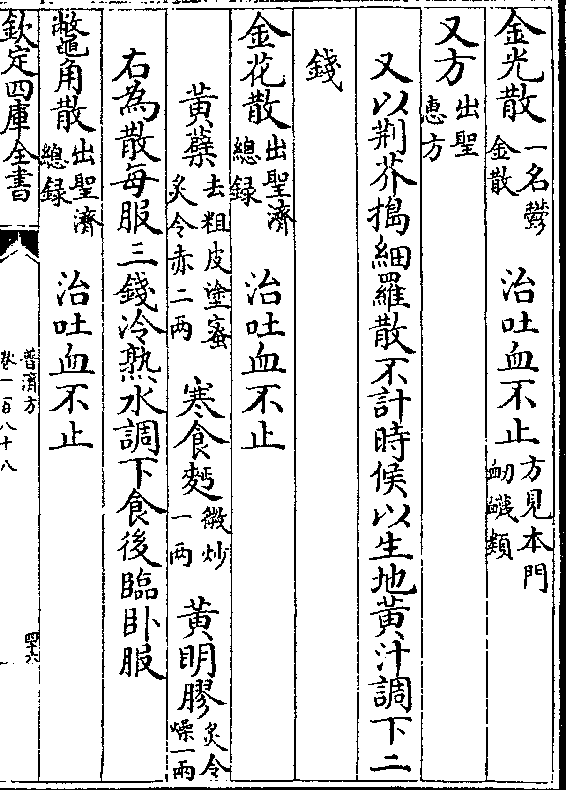 金光散一名鬱金散　治吐血不止方見本門衂衊類
又方出聖惠方
又以荆芥搗細羅散不計時候以生地黄汁調下二
錢
金花散出聖濟總録　治吐血不止
黄蘗去粗皮塗蜜炙令赤二两　寒食麪微炒一两　黄明膠炙令燥一兩
右為散每服三錢冷熟水調下食後臨卧服
鼈角散出聖濟總録　治吐血不止
欽定四庫全書
普濟方
卷一百八十八
四十六